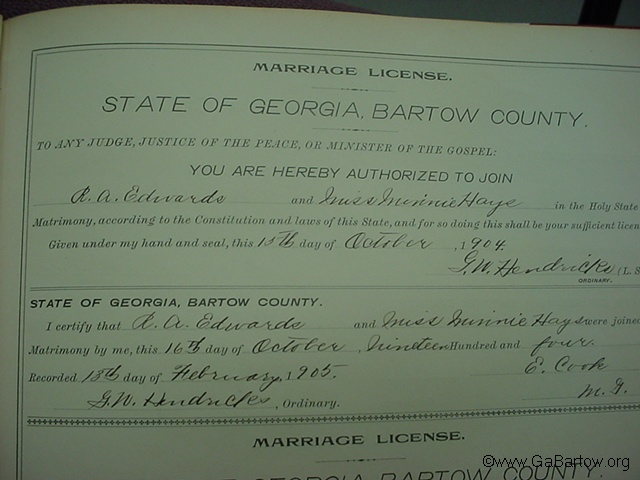 MARRIAGE LICENSE.
STATE OF GEORGIA, BARTOW COUNTY.
TO ANY JUDGE, JUSTICE OF THE PEACE, OR MINISTER OF THE GOSPEL:
YOU ARE HEREBY AUTHORIZED TO JOIN
R. A. Edwards and Miss Minnie Hays in the Holy State
Matrimony, according to the Constitution and laws of this State, and for so doing this shall be your sufficient licen
Given under my hand and seal, this 15th day of October, 1904.
G. W. Hendricks (L. S
ORDINARY.
STATE OF GEORGIA, BARTOW COUNTY.
I certify that R. A. Edwards and Miss Minnie Hays were joined
Matrimony by me, this 16th day of October, Nineteen Hundred and four.
Recorded 13th day of February, 1905. E. Cook
G. W. Hendricks, Ordinary. M. G.
MARRIAGE LICENSE.
STATE OF GEORGIA, BARTOW COUNTY.
©www.GaBartow.org